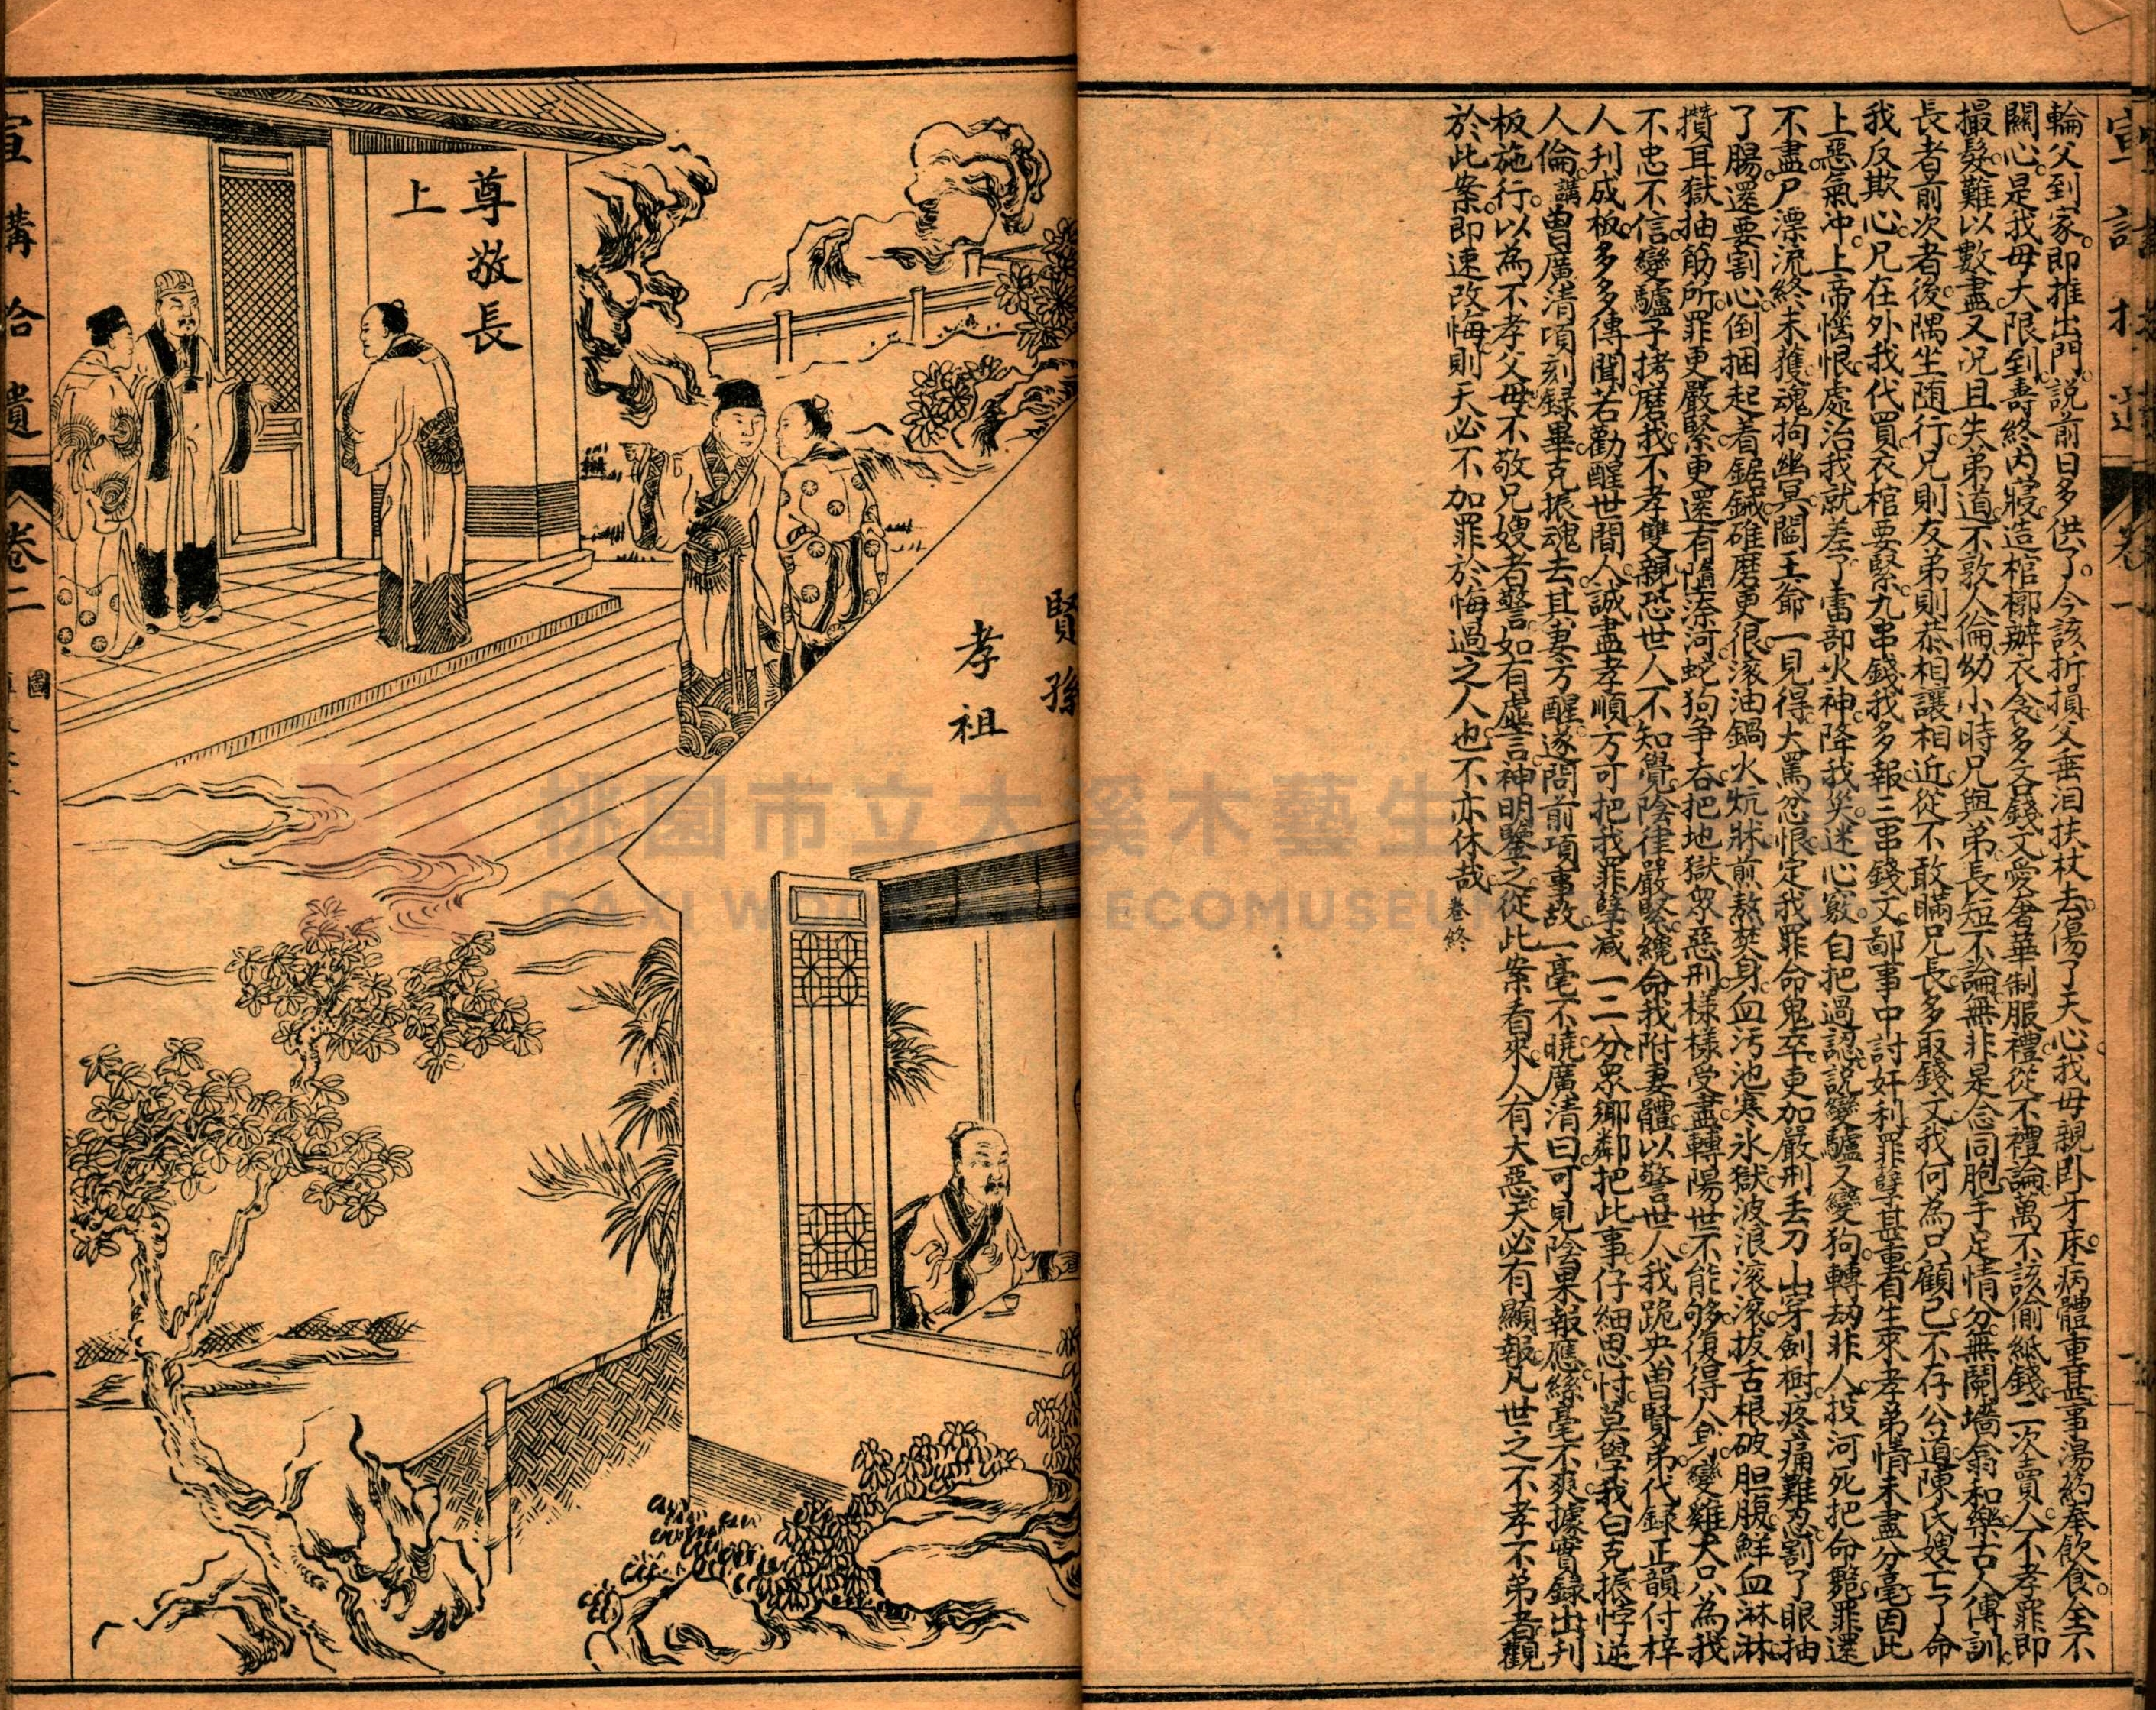 輪父到家即推出門説前日多供了今該折損父垂泪扶杖去傷了天心我母親卧牙床病體重甚事湯药奉飲食全不
關心是我母大限到壽終内寢造棺槨辦衣衾多多錢文愛奢華制服禮從不禮論萬不該偷紙錢二次賣人不孝罪即
撮髮難以數盡又況且失弟道不敦人倫幼小時兄與弟長短不論無非是念同胞手足情分無鬩墻翁和樂古人傳訓
長者前次者後隅坐随行兄則友弟則恭相讓相近從不敢瞞兄長多取錢文我何為只顧己不存公道陳氏嫂亡了命
我反欺心兄在外我代買衣棺要緊九串錢我多報三串錢文鄙事中討奸利罪孽甚重有生來孝弟情未盡分毫因此
上惡氣冲上帝惱恨處治我就差了雷部火神降我灾迷心竅自把過認説變驢又變狗轉劫非人投河死把命斃罪還
不盡尸漂流終未獲魂拘幽冥閻王爺一見得大罵忿恨定我罪命鬼卒更加嚴刑丢刀山穿劍樹疼痛難忍割了眼抽
了腸還要割心倒捆起着鋸鋮碓磨更很滚油鍋火炕牀煎熬焚身血污池寒氷獄波浪滚滚拔舌根破胆腹鮮血淋淋
攢耳獄抽筋所罪更嚴緊更還有墮奈河蛇狗争吞把地獄眾惡刑樣樣受盡轉陽世不能够復得人身變雞犬只為我
不忠不信變驢子拷磨我不孝雙親恐世人不知覺陰律嚴緊纔命我附妻體以警世人我跪央曽賢弟代録正韻付梓
人刋成板多多傳聞若勸醒世間人誠盡孝順方可把我罪孽减一二分眾鄉鄰把此事仔細思忖莫學我白克振悖逆
人倫講曽廣清頃刻録畢克振魂去其妻方醒遂問前項事故一毫不曉廣清曰可見陰果報應絲毫不爽據實録出刋
板施行以為不孝父母不敬兄嫂者警如有虚言神明鑒之從此案看來人有大惡天必有顯報凡世之不孝不弟者觀
於此案即速改悔則天必不加罪於悔過之人也不亦休哉 卷終
尊敬長
上
賢孫
孝祖
宣講拾遺
卷二
圖
一
桃園市立大溪木藝生
DAXI WOOD ART ECOMUSEUM